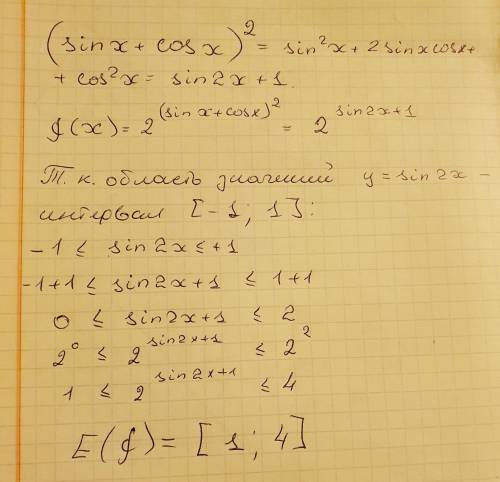 (sinx + cosx)² = sin²x + 2sinxcosx +
+ cos²x = sin2x + 1.
f(x) = 2^(sinx+cosx)² = 2^sin2x+1
Т. к. область значений y = sin2x –
интервал [-1; 1]:
-1 ≤ sin2x ≤ +1
-1+1 ≤ sin2x+1 ≤ 1+1
0 ≤ sin2x+1 ≤ 2
2⁰ ≤ 2^sin2x+1 ≤ 2²
1 ≤ 2^sin2x+1 ≤ 4
E(f) = [1; 4]